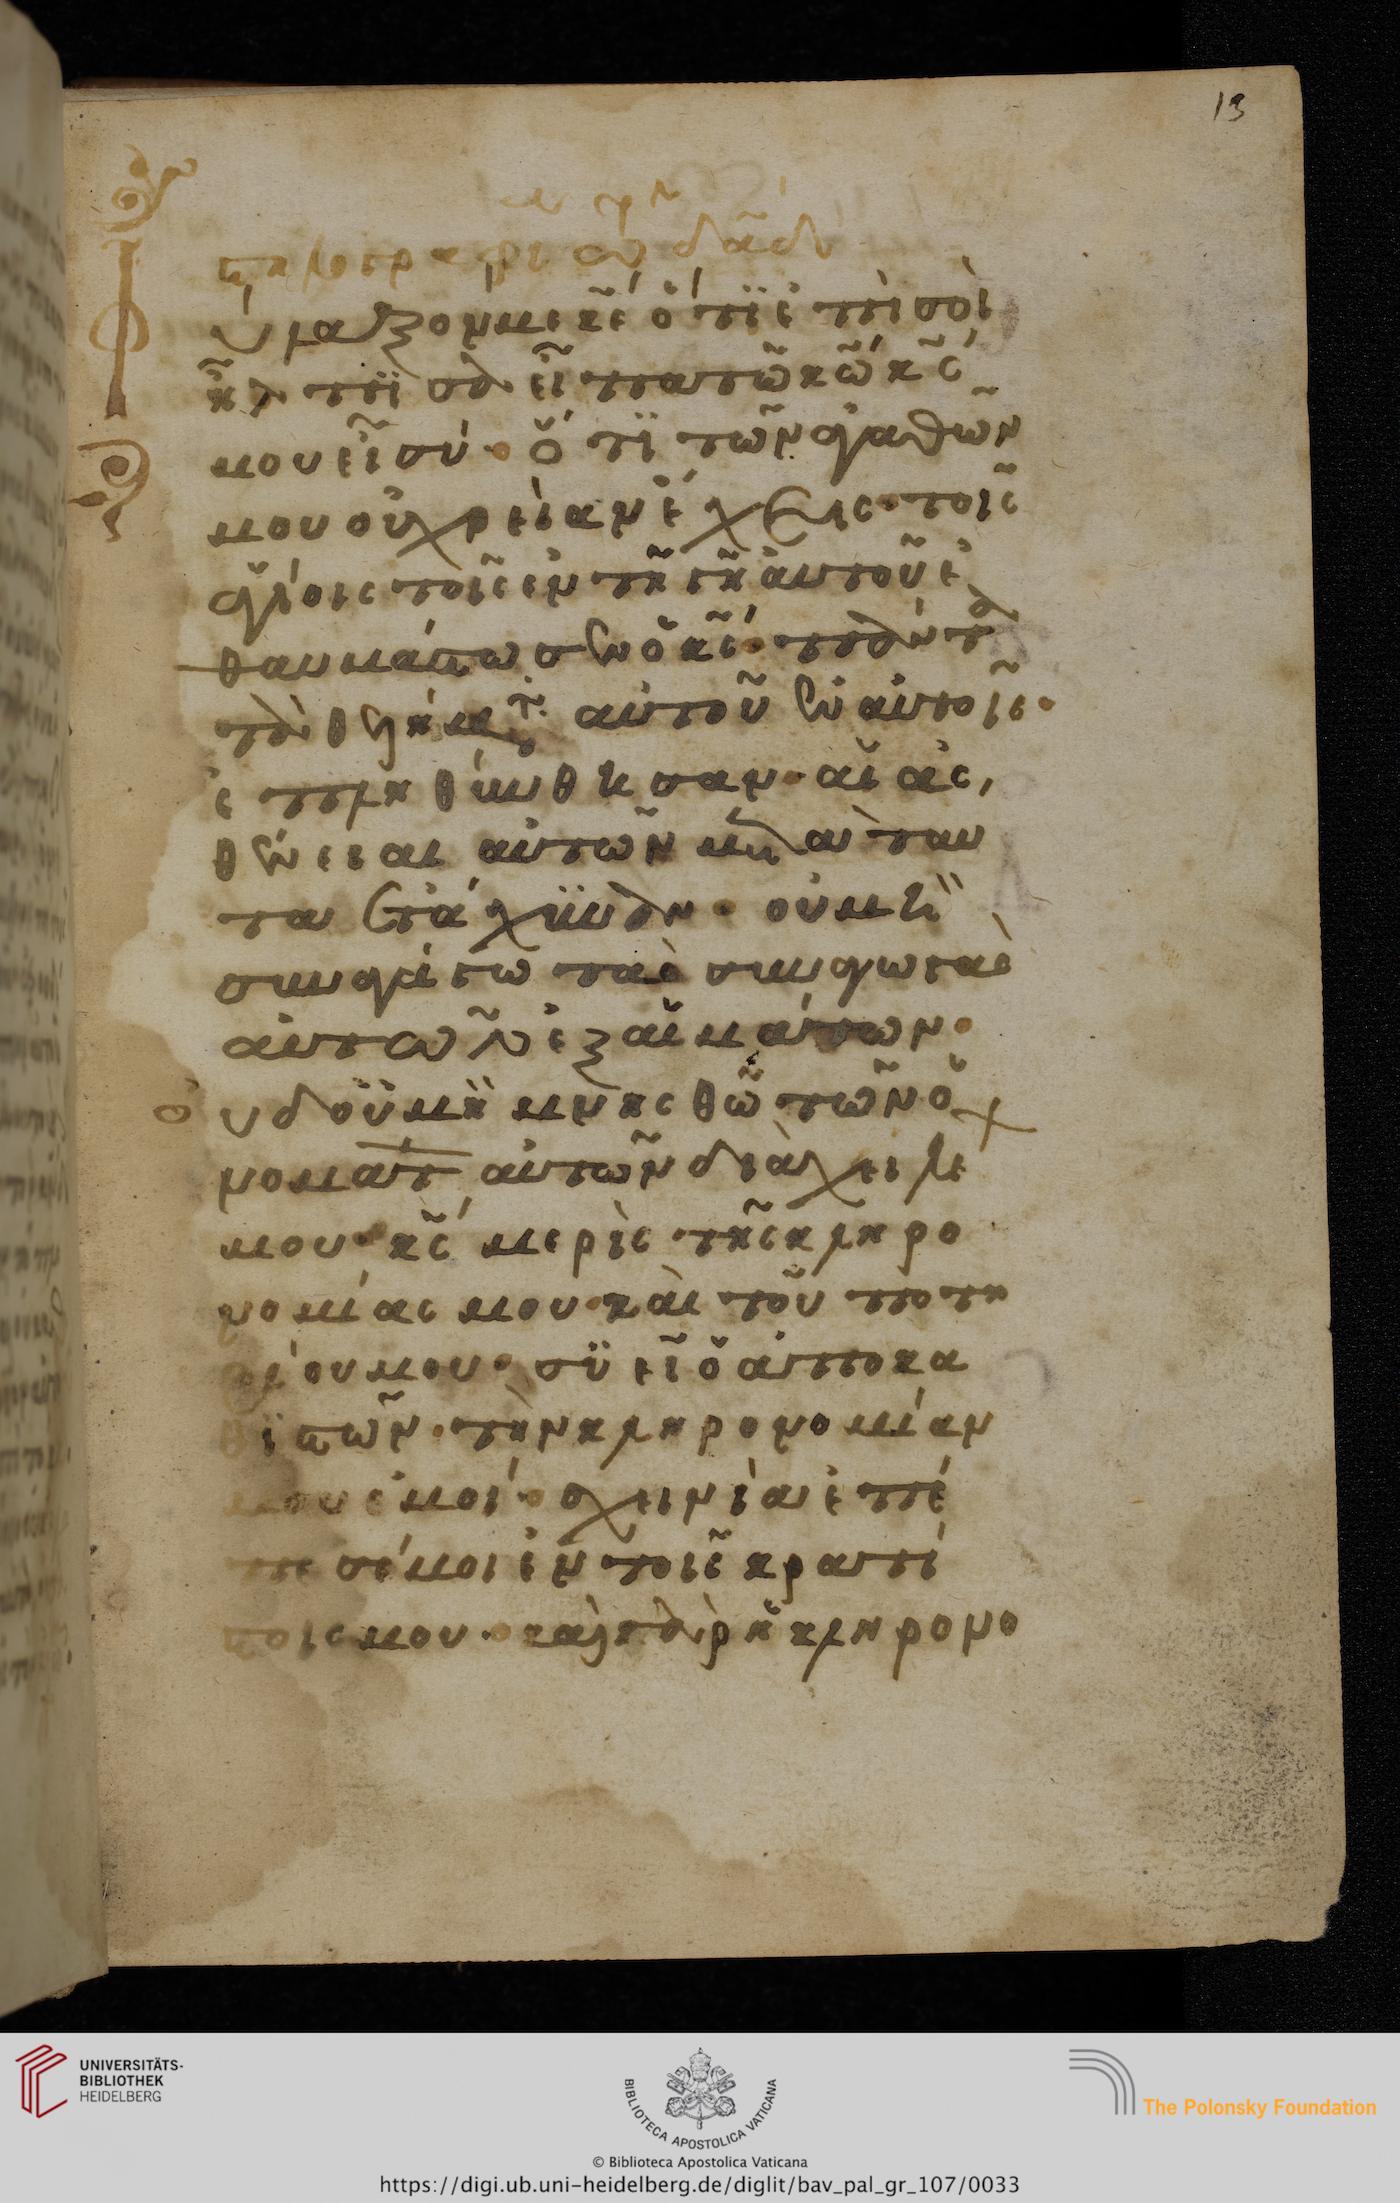 13
φύλαξόν με κε ὅτι ἐπὶ σοὶ
ἤλπισα· εἶπα τῶ κῶ κς
μου εἶ σύ· ὅτι τῶν ἀγαθῶν
μου οὐ χρείαν ἔχεις· τοῖς
ἁγίοις τοῖς ἐν τῆ γῆ αὐτοῦ ἐ
θαυμάστωσεν ὁ κς· πάντα
τὰ θελήματα αὐτοῦ ἐν αὐτοῖς·
ἐπληθύνθησαν· αἱ ἀς
θένειαι αὐτῶν μετὰ ταυ
τα ἐτάχυναν· οὐ μὴ
συναγάγω τὰς συναγωγὰς
αὐτῶν ἐξ αἱμάτων·
ὀυδ οὐ μὴ μνησθῶ τῶν ὀ
νομάτ αὐτῶν διὰ χειλέ
μου· κς μερὶς τῆς κληρο
νομίας μου· καὶ τοῦ ποτη
ρίου μου· σὺ εἶ ὁ ἀποκα
θιστῶν· τὴν κληρονομίαν
μου ἐμοί· σχοινία ἐπέ
πεσέ μοι ἐν τοῖς κρατί
στοις μου· καὶ γὰρ ἡ κληρονο
UNIVERSITÄTS-
BIBLIOTHEK
HEIDELBERG
BIBLIOTECA APOSTOLICA VATICANA
The Polonsky Foundation
© Biblioteca Apostolica Vaticana
https://digi.ub.uni-heidelberg.de/diglit/bav_pal_gr_107/0033